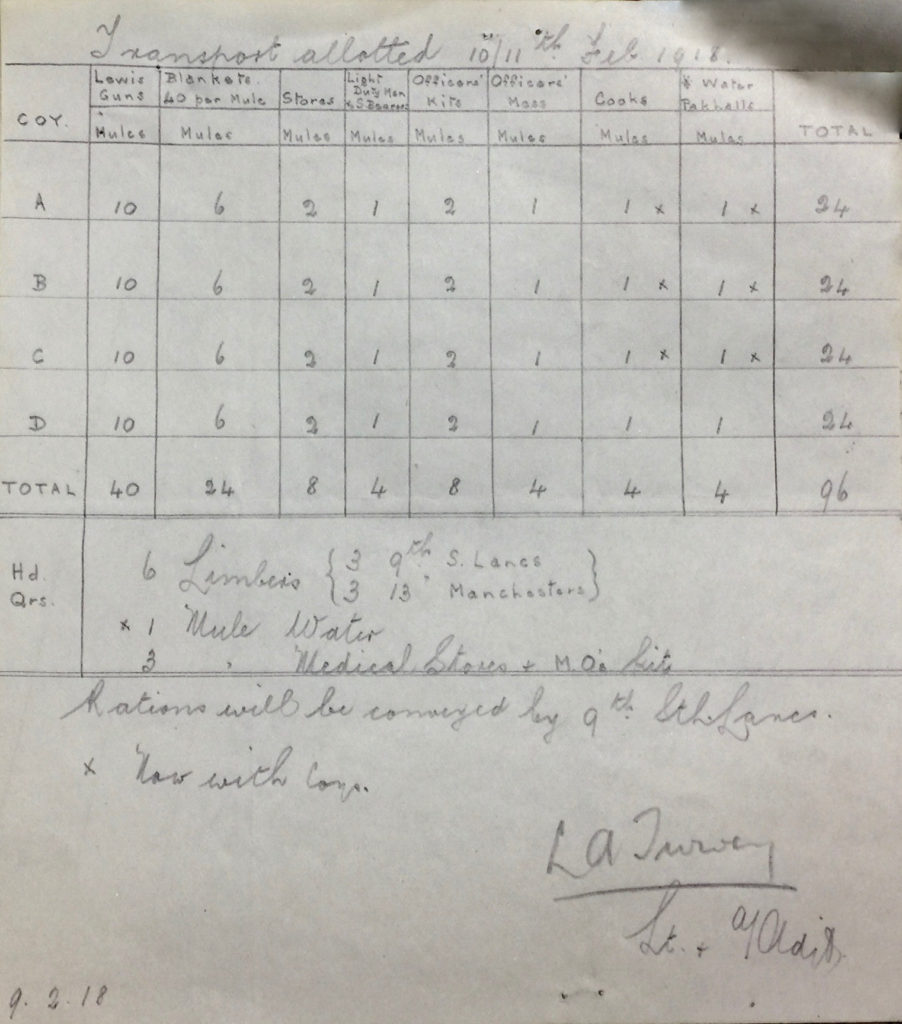 Transport allotted 10/11th Feb 1918.
COY. Lewis Guns Mules Blankets. 40 per Mule Mules Stores Mules Light Duty Men & S. Bearers Mules Officers' Kits Mules Officers' Mess Mules Cooks Mules * Water Pakhalls Mules TOTAL
A 10 6 2 1 2 1 1 x 1 x 24
B 10 6 2 1 2 1 1 x 1 x 24
C 10 6 2 1 2 1 1 x 1 x 24
D 10 6 2 1 2 1 1 1 24
TOTAL 40 24 8 4 8 4 4 4 96
Hd. Qrs.
6 Limbers { 3 9th S. Lancs
3 13" Manchesters }
* 1 Mule Water
3 " Medical Stores + M.O's kit
Rations will be conveyed by 9th Sth. Lancs.
x Now with Coys.
L A Turvey
Lt. + a/Adjt.
9. 2. 18